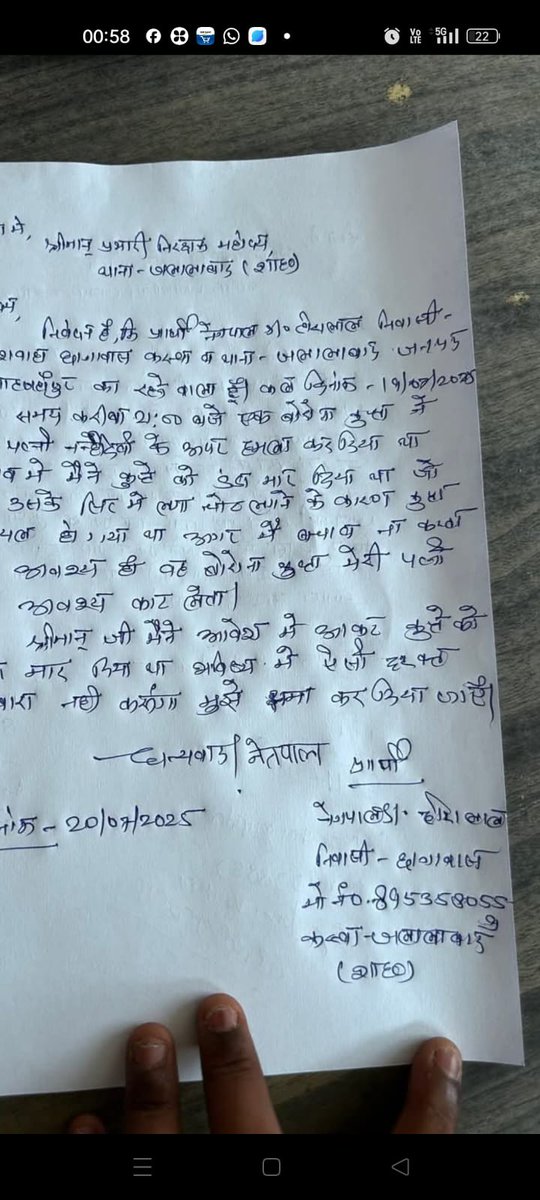 00:58
5G
22
में,
श्रीमान् प्रभारी निरक्षक महोदय,
थाना - जलालाबाद (शाह०)
निवेदन है, कि प्रार्थी नेतपाल S/० हीरालाल निवासी -
कस्बा व थाना - जलालाबाद जनपद
का रहने वाला हूँ। कल दिनांक - 19/07/2025
समय करीब 21:00 बजे एक कुत्ता ने
पत्नी के ऊपर हमला कर दिया था
में मैंने कुत्ते को डंडा मार दिया था जो
उसके सिर में लगा चोट लगने के कारण कुत्ता
हो गया था अगर मैं बचाव ना करता
अवश्य ही वह कुत्ता मेरी पत्नी
अवश्य काट लेता।
श्रीमान् जी मैंने आवेश में आकर कुत्ते को
मार दिया था भविष्य में ऐसी हरकत
नहीं करूंगा मुझे क्षमा कर दिया जाऐ।
धन्यवाद। नेतपाल प्रार्थी
- 20/07/2025
नेतपाल S/० हीरालाल
निवासी -
मो नं०. 895358055
कस्बा - जलालाबाद
(शाह०)